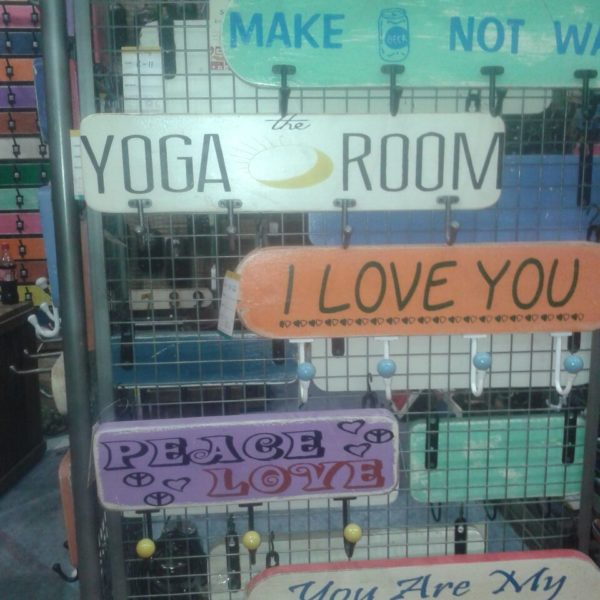 MAKE NOT WA
the
YOGA ROOM
I LOVE YOU
PEACE
LOVE
You Are My